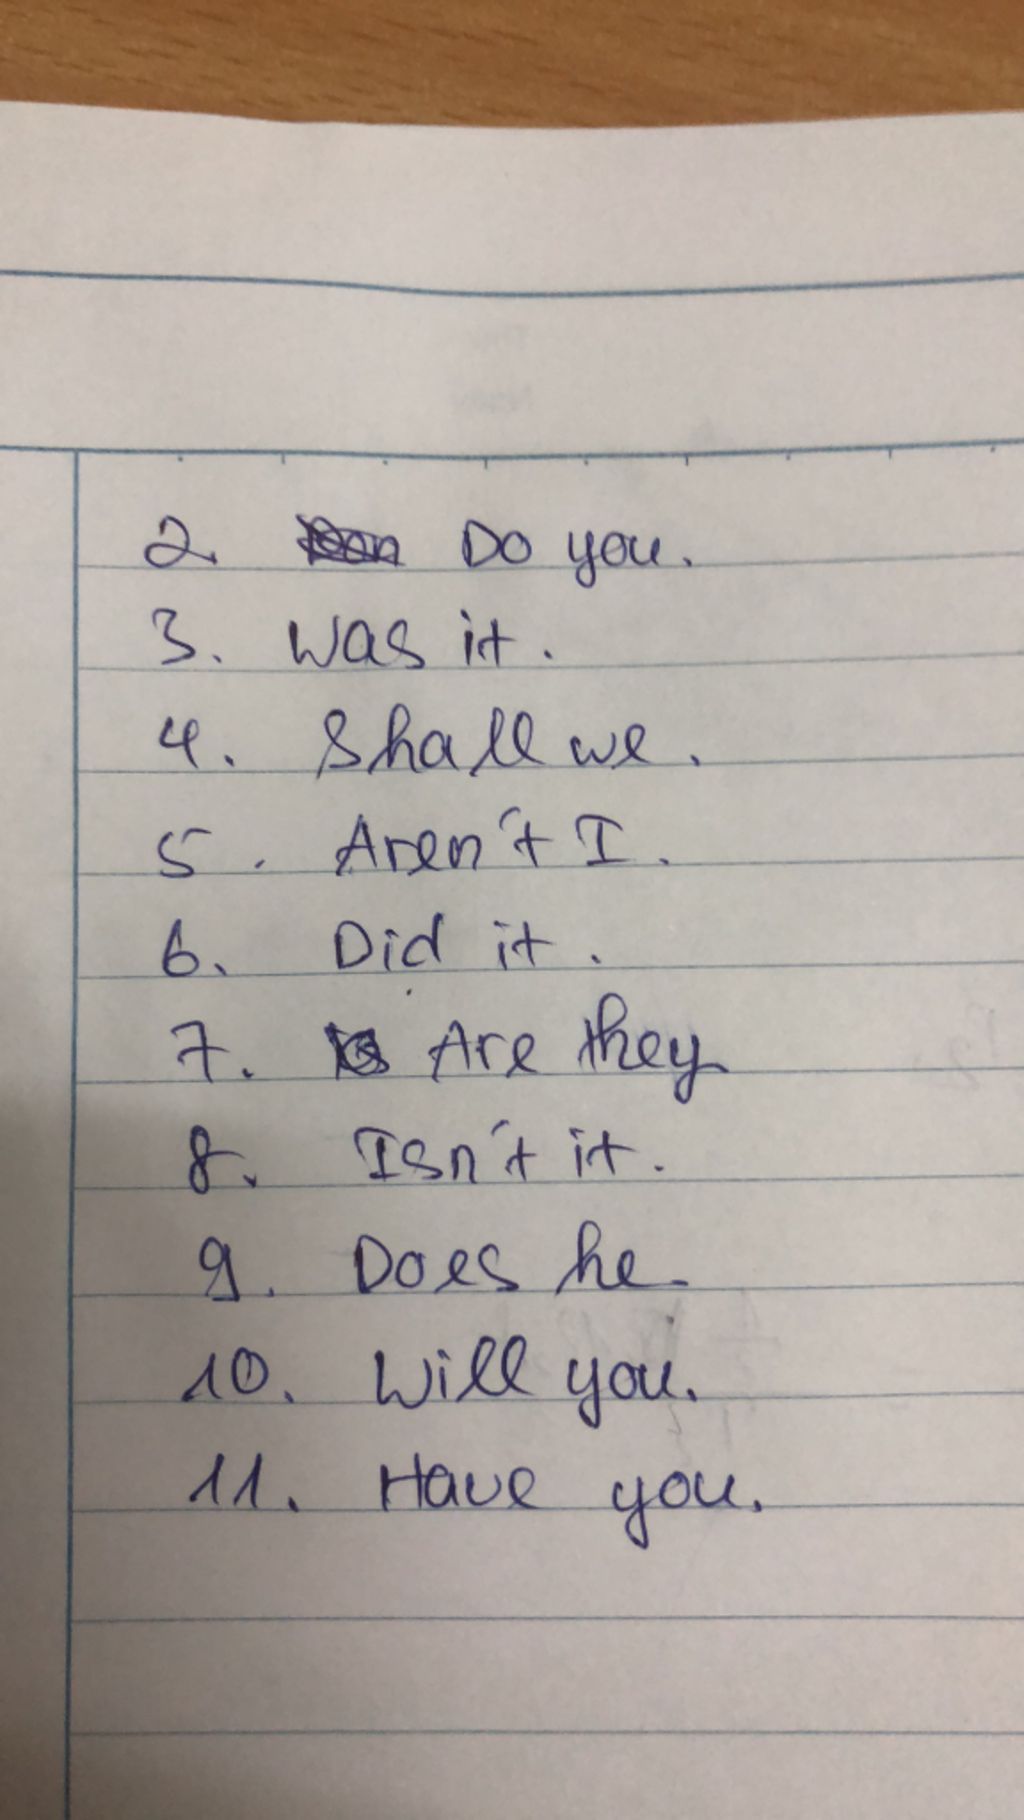 2. Do you.
3. Was it.
4. Shall we.
5. Aren't I.
6. Did it.
7. Are they
8. Isn't it.
9. Does he.
10. Will you.
11. Have you.